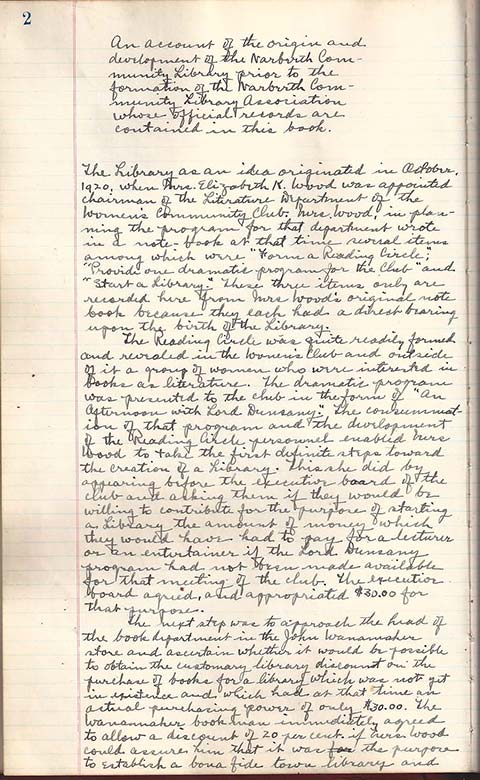 2
An account of the origin and
development of the Narberth Com-
munity Library prior to the
formation of the Narberth Com-
munity Library Association
whose official records are
contained in this book.
The Library as an idea originated in October,
1920, when Mrs. Elizabeth K. Wood was appointed
chairman of the Literature Department of the
Women's Community Club. Mrs. Wood, in plan-
ning the program for that department wrote
in a note-book at that time several items
among which were "Form a Reading Circle",
"Provide one dramatic program for the Club" and
"Start a Library." These three items only are
recorded here from Mrs Wood's original note
book because they each had a direct bearing
upon the birth of the Library.
The Reading Circle was quite readily formed
and revealed in the Women's Club and outside
of it a group of women who were interested in
books as literature. The dramatic program
was presented to the club in the form of "An
Afternoon with Lord Dunsany". The consummat-
ion of that program and the development
of the Reading Circle personnel enabled Mrs
Wood to take the first definite steps toward
the creation of a Library. This she did by
appearing before the executive board of the
club and asking them if they would be
willing to contribute for the purpose of starting
a Library the amount of money which
they would have had to pay for a lecturer
or an entertainer if the Lord Dunsany
program had not been made available
for that meeting of the club. The executive
board agreed and appropriated $30.00 for
that purpose.
The next step was to approach the head of
the book department in the John Wanamaker
store and ascertain whether it would be possible
to obtain the customary library discount on the
purchase of books for a library which was not yet
in existence and which had at that time an
actual purchasing power of only $30.00. The
Wanamaker book man immediately agreed
to allow a discount of 20 per cent. if Mrs Wood
could assure him that it was for the purpose
to establish a bona fide town library and